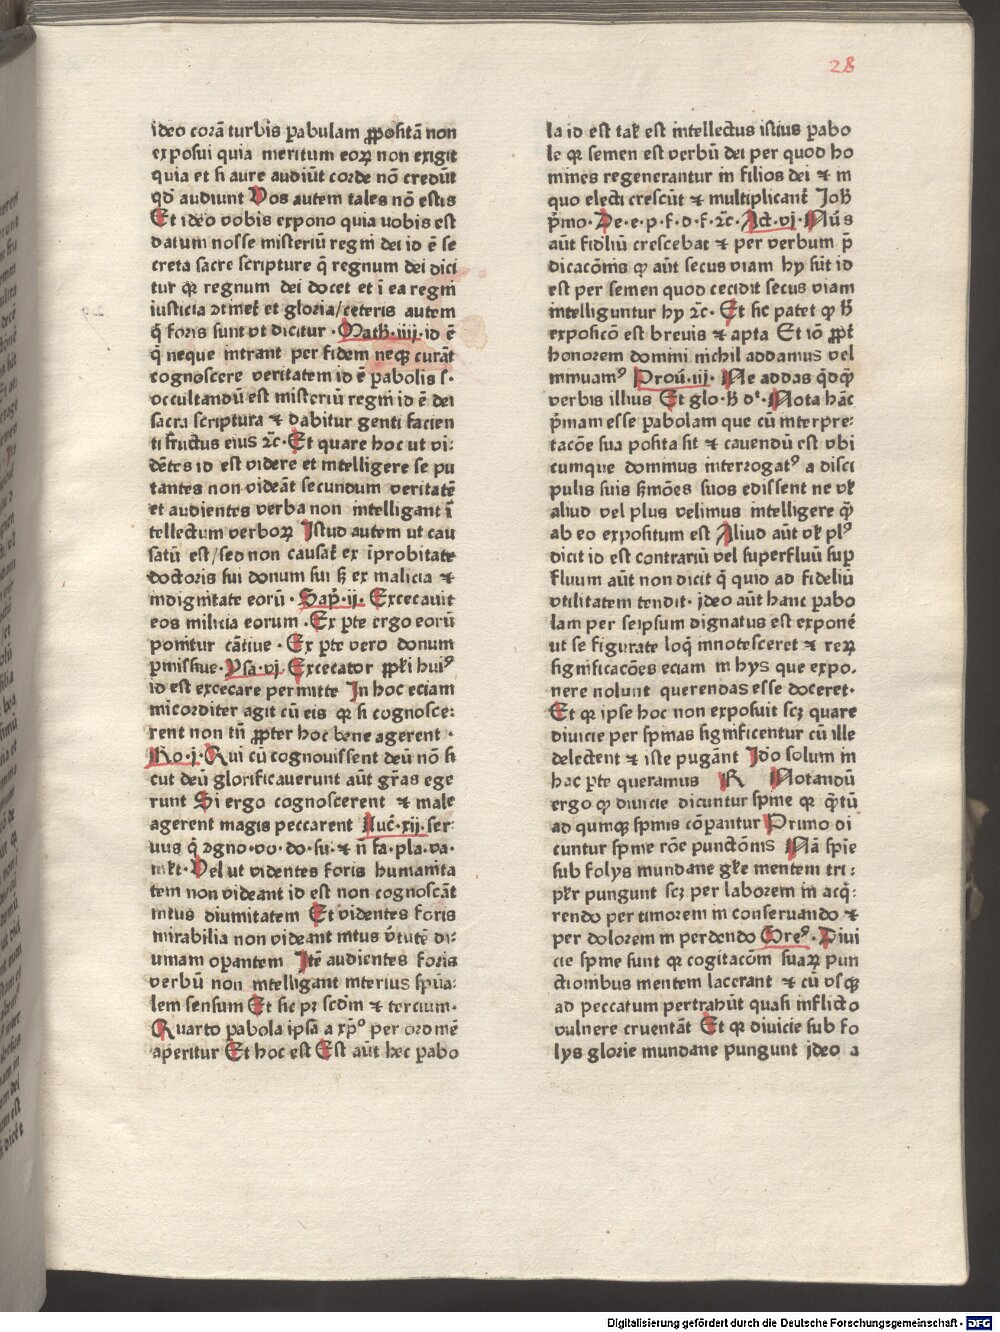 28
ideo corā turbis pabulam ꝓpositā non
exposui quia meritum eoꝝ non exigit
quia et si aure audiūt corde nō credūt
qď audiunt Vos autem tales nō estis
Et ideo vobis expono quia uobis est
datum nosse misteriū regni dei id ē se
creta sacre scripture q̄ regnum dei dici
tur qꝛ regnum dei docet et ī ea regni
iusticia ꝯtinet̄ et gloria/ceteris autem
q̄ foris sunt vt dicitur · Math̄·iiij·id ē
q̄ neque intrant per fidem neqꝫ curāt
cognoscere veritatem id ē pabolis s·
occultandū est misteriū regni id ē dei
sacra scriptura ⁊ dabitur genti facien
ti fructus eius ⁊c̄·Et quare hoc ut vi-
dētes id est videre et intelligere se pu
tantes non videāt secundum veritatē
et audientes verba non intelligant ī
tellectum verboꝝ Istud autem ut cau
satū est/sed non causat̄ ex īprobitate
doctoris sui donum sui sꝫ ex malicia ⁊
indignitate eorū · Sap̄·ij· Excecauit
eos milicia eorum · Ex p̱te ergo eorū
ponitur cātiue · Ex p̱te vero donum
p̄missiue·Ysa·vj Excecator ꝓpl̄i hui⁹
id est excecare permitte In hoc eciam
micorditer agit cū eis qꝛ si cognosce-
rent non tn̄ ꝓpter hoc bene agerent ·
Ro·j·Qui cū cognouissent deū nō si
cut deū glorificauerunt aūt gr̄as ege
runt Si ergo cognoscerent ⁊ male
agerent magis peccarent Luc̄·xij·ser-
uus q̄ ꝯgno·vo·do·su·⁊ n̄ fa·pla·va·
ml̄t·Vel ut videntes foris humanita
tem non videant id est non cognoscāt
intus diuinitatem Et videntes foris
mirabilia non videant intus v̄tutē di-
uinam oꝑantem Itē audientes foris
verbū non intelligant interius sp̄ua-
lem sensum Et sic pꝫ scd̄m ⁊ tercium·
Quarto pabola ipsā a xp̄o per ordinē
aperitur Et hoc est Est aūt hec pabo
la id est tal̄ est intellectus istius pabo
le qꝛ semen est verbū dei per quod ho
mines regenerantur in filios dei ⁊ in
quo electi crescūt ⁊ multiplicant̄ Joh̄
p̄mo·De·e·p·f·d·f·⁊c̄·Act·vj·Nūs
aūt fidliū crescebat ⁊ per verbum p̄
dicacōnis qd̄ aūt secus viam hy sūt id
est per semen quod cecidit secus viam
intelliguntur hy ⁊c̄· Et sic patet ꝙ h̄
exposicō est breuis ⁊ apta Et iō ꝓpt̄
honorem domini nichil addamus vel
minuam⁹ Prou̅·iij· Ne addas q̄dꝙ̄
verbis illius Et glo·h̄ dꝰ·Nota hāc
p̄mam esse pabolam que cū interpre-
tacōe sua posita sit ⁊ cauendū est vbi
cumque dominus interrogat⁹ a disci
pulis suis sꝫmōes suos edissent ne vl̄
aliud vel plus velimus intelligere ꝙ̄
ab eo expositum est Aliud aūt vl̄ pl⁹
dicit id est contrariū vel superfluū suꝑ
fluum aūt non dicit q̄ quid ad fideliū
vtilitatem tendit· ideo aūt hanc pabo
lam per seipsum dignatus est exponē
ut se figurate loq̄ innotesceret ⁊ reꝝ
significacōes eciam in hys que expo-
nere nolunt querendas esse doceret·
Et qꝛ ipse hoc non exposuit scꝫ quare
diuicie per spinas significentur cū ille
delectent ⁊ iste pugānt Ido solum in
hac p̱te queramus R Notandū
ergo ꝙ diuicie dicuntur spine qꝛ ꝙ̄tū
ad qumqꝫ spinis cōpantur Primo di
cuntur spine rōe punctōnis Nā spie
sub folys mundane gl̄e mentem tri-
pl̄r pungunt scꝫ per laborem in acq̄-
rendo per timorem in conseruando ⁊
per dolorem in perdendo Gre⁹·Diui
cie spine sunt qꝛ cogitacōm suaꝝ pun
ctionibus mentem lacerant ⁊ cū vsqꝫ
ad peccatum pertrahūt quasi inflicto
vulnere cruentāt Et qꝛ diuicie sub fo
lys glorie mundane pungunt ideo a
Digitalisierung gefördert durch die Deutsche Forschungsgemeinschaft · DFG